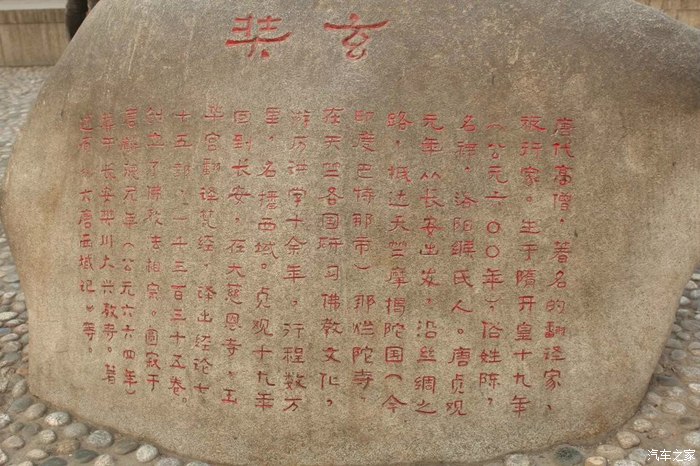 玄奘
唐代高僧，著名的翻译家，
旅行家。生于隋开皇十九年
（公元六００年），俗姓陈，
名祎，洛阳缑氏人。唐贞观
元年从长安出发，沿丝绸之
路，抵达天竺摩揭陀国（今
印度巴特那市）那烂陀寺，
在天竺各国研习佛教文化，
游历讲学十余年，行程数万
里，名播西域。贞观十九年
回到长安，在大慈恩寺、玉
华宫翻译梵经，译出经论七
十五部，一千三百三十五卷。
创立了佛教法相宗。圆寂于
高宗麟德元年（公元六六四年）
葬于长安樊川大兴教寺。著
有《大唐西域记》等。
汽车之家